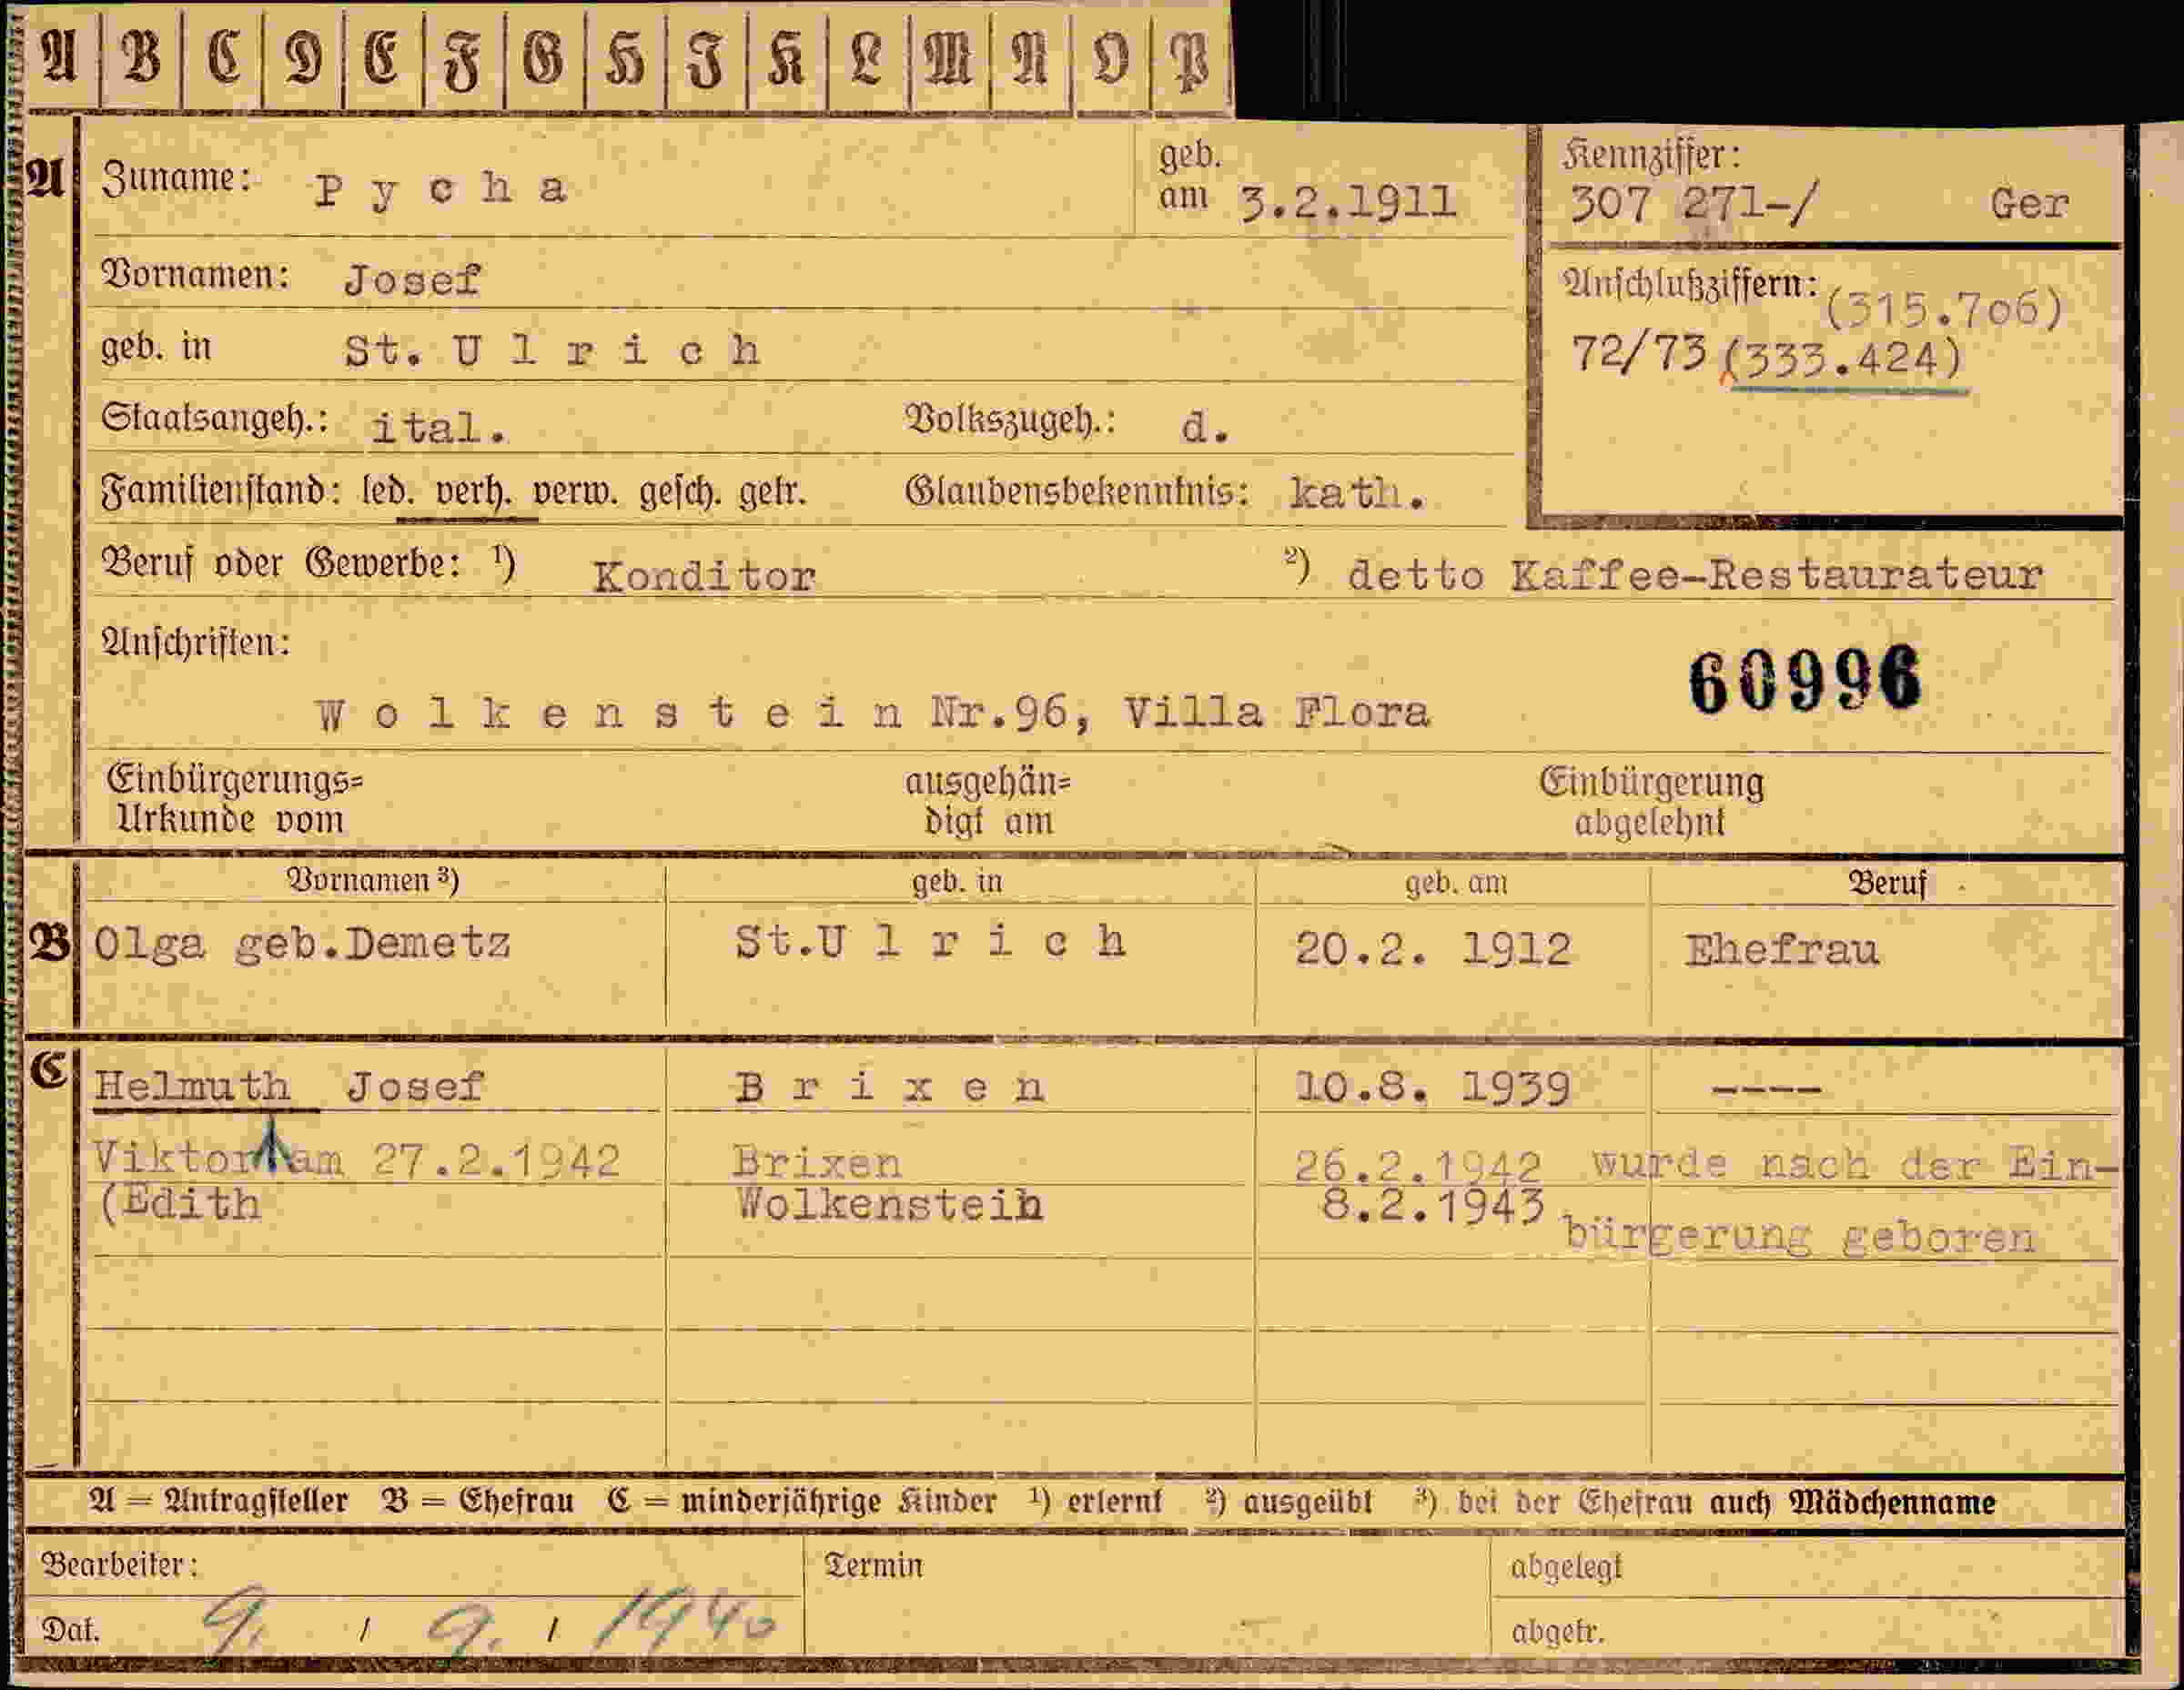 A B C D E F G H I K L M N O P
A Zuname: Pycha geb. am 3.2.1911 Kennziffer: 307 271-/ Ger
Vornamen: Josef Anschlußziffern: (315.706)
geb. in St. Ulrich 72/73 (333.424)
Staatsangeh.: ital. Volkszugeh.: d.
Familienstand: led. verh. verw. gesch. getr. Glaubensbekenntnis: kath.
Beruf oder Gewerbe: ¹) Konditor ²) detto Kaffee-Restaurateur
Anschriften:
60996
Wolkenstein Nr.96, Villa Flora
Einbürgerungs= ausgehän= Einbürgerung
Urkunde vom digt am abgelehnt
Vornamen ³) geb. in geb. am Beruf
B Olga geb.Demetz St.Ulrich 20.2. 1912 Ehefrau
C Helmuth Josef Brixen 10.8. 1939 ----
Viktor am 27.2.1942 Brixen 26.2.1942 wurde nach der Ein-
(Edith Wolkenstein 8.2.1943
bürgerung geboren
A = Antragsteller B = Ehefrau C = minderjährige Kinder ¹) erlernt ²) ausgeübt ³) bei der Ehefrau auch Mädchenname
Bearbeiter: Termin abgelegt
Dat. 9. / 9. / 1940 abgetr.